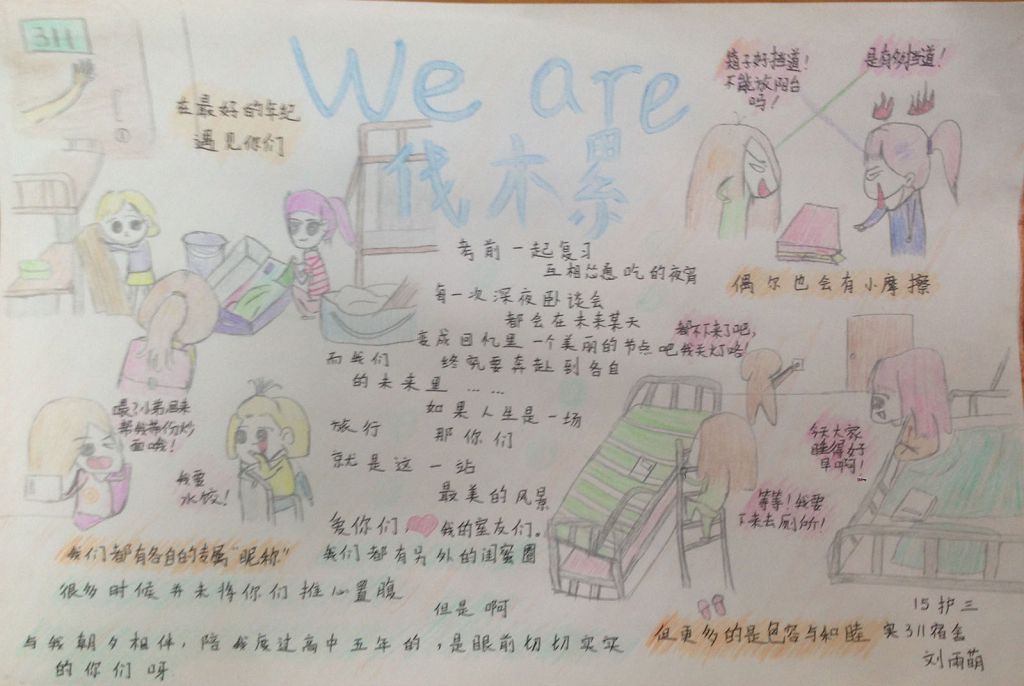 311
We are
伐木累
在最好的年纪
遇见你们
箱子好挡道!
不能放阳台
吗!
是有多挡道!
偶尔也会有小摩擦
考前一起复习
互相怂恿吃的夜宵
每一次深夜卧谈会
都会在未来某天
变成回忆里一个美丽的节点吧
而我们 终究要奔赴到各自
的未来里 ……
如果人生是一场
旅行 那你们
就是这一站
最美的风景
爱你们 我的室友们。
喂?小弟回来
帮我带份炒
面哦!
我要
水饺!
我们都有各自的专属"昵称"
都不来了吧,
我关灯咯!
今天大家
睡得好
早啊!
等等!我要
下来去厕所!
我们都有另外的闺蜜圈
很多时候并未将你们推心置腹
但是啊
与我朝夕相伴,陪我度过高中五年的,是眼前切切实实
的你们呀
但更多的是包容与和睦
15护三
实311宿舍
刘雨萌